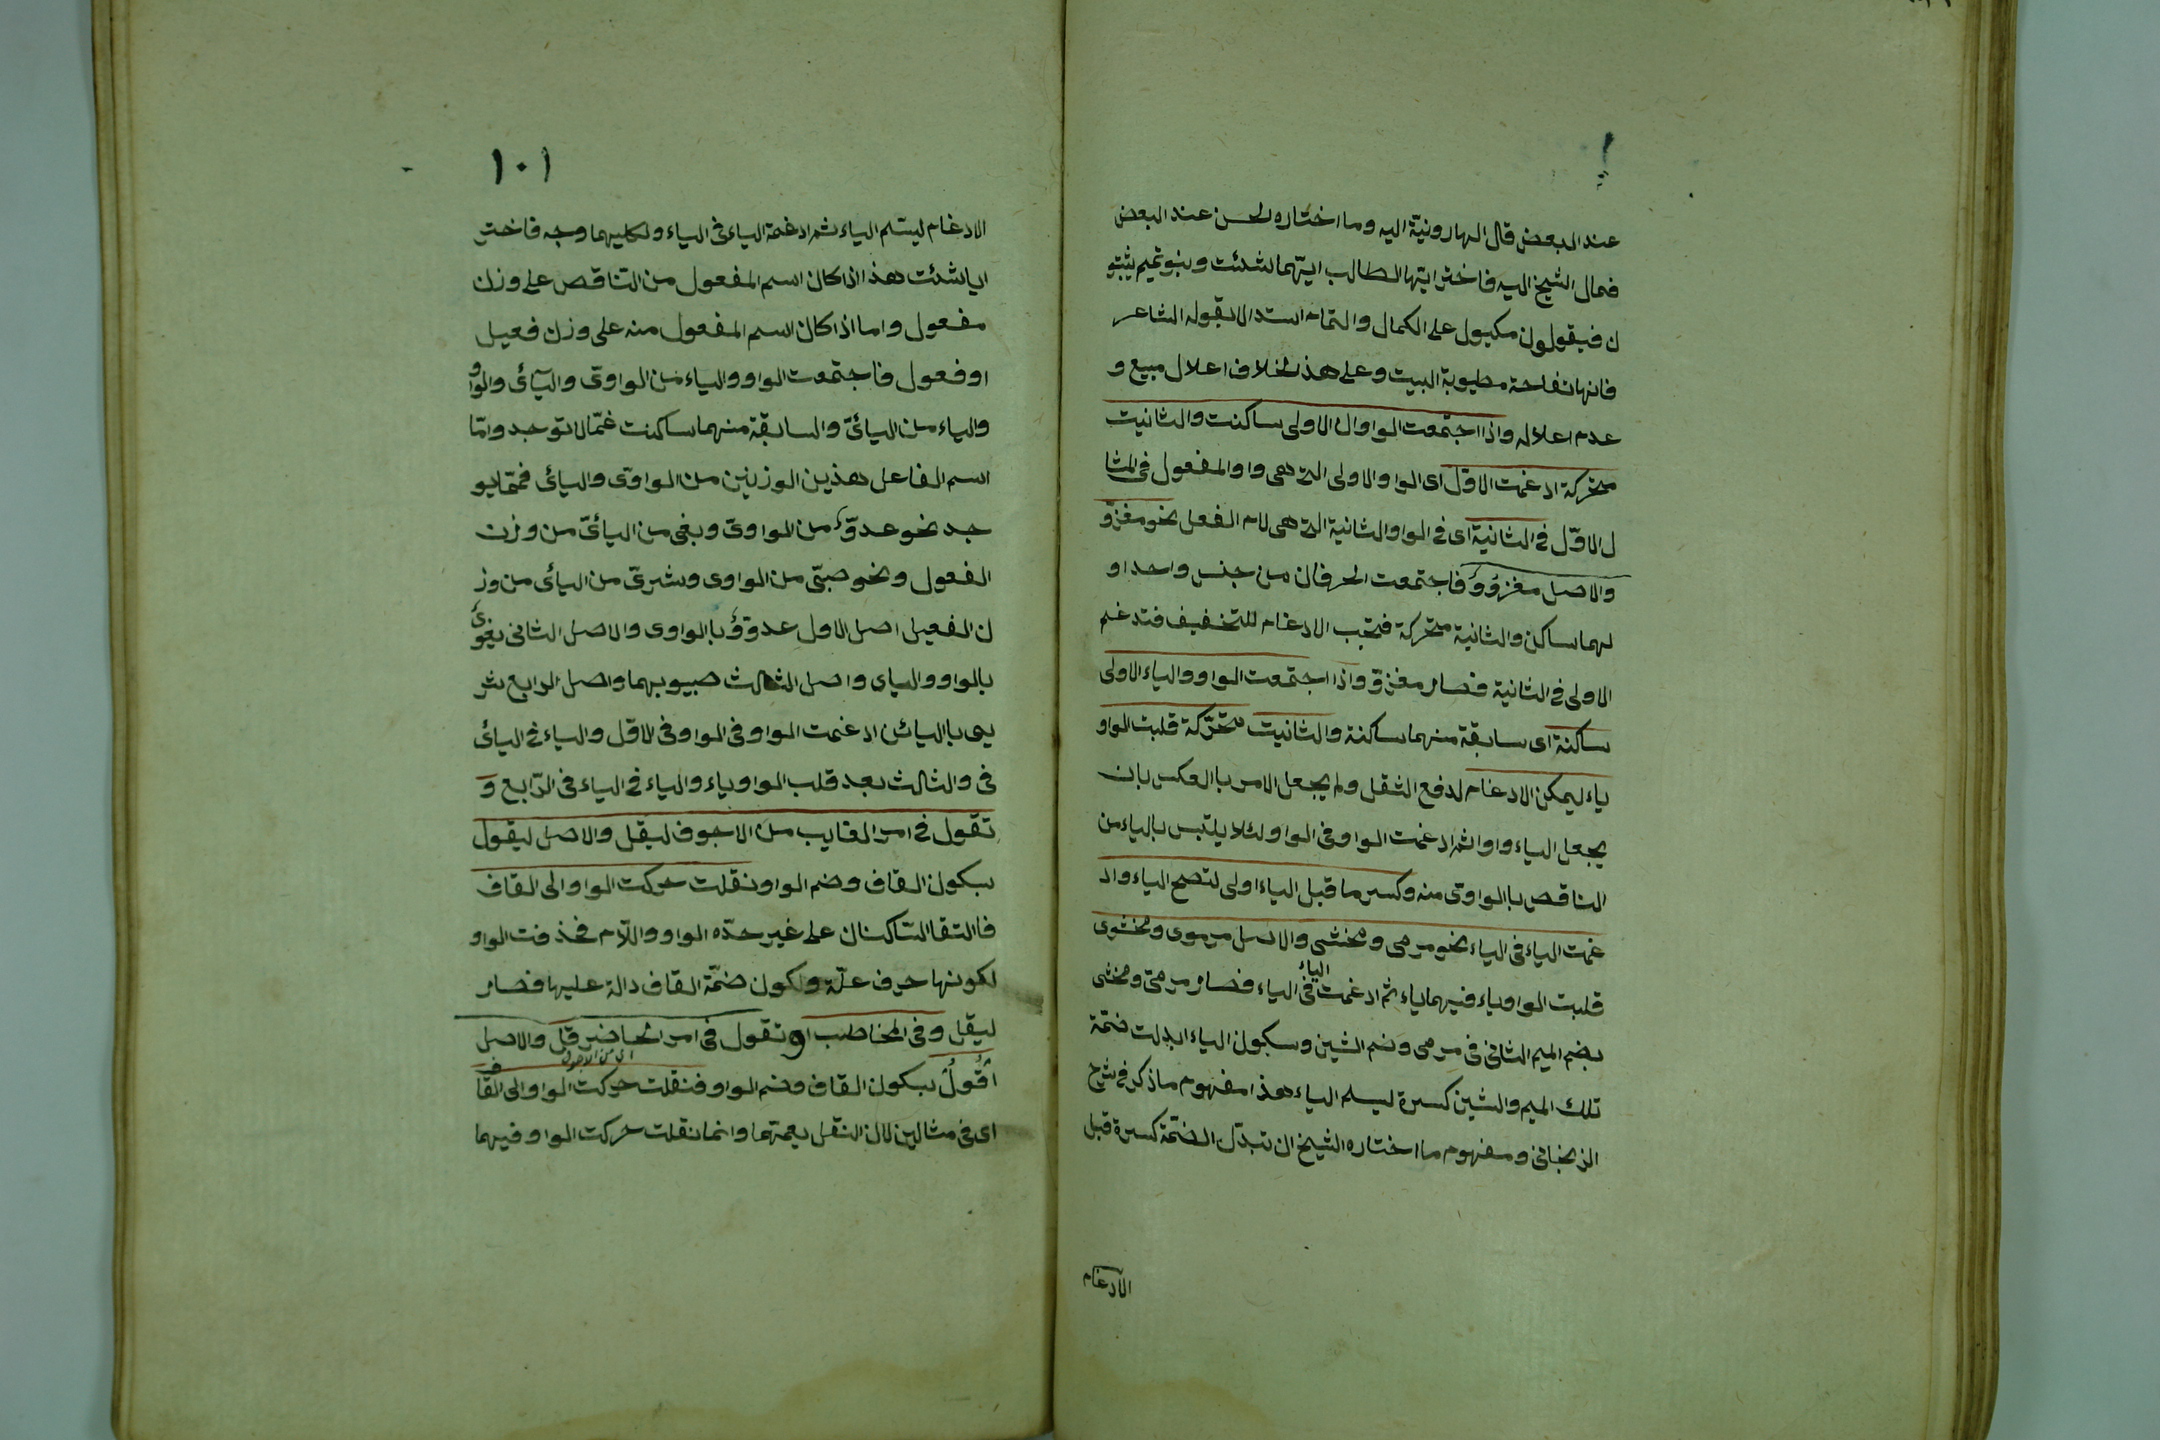 عند البعض قال الهارونية اليه وما اختاره لحسن عند البعض
فمال الشيخ اليه فاختر ايتها الطالب ايتهما شئت وبنو تميم يثبتو
ن فيقولون مكيول على الكمال والتمام استدالا بقوله الشاعر
فانها تفاحة مطيوبة البيت وعلى هذ الخلاف اعلال مبيع و
عدم اعلاله واذا اجتمعت الواوان الاولى ساكنت والثانيت
متحركة ادغمت الاول اى الواو الاولى التى هى واو المفعول فى المثا
ل الاوّل فى الثانية اى فى الواو الثانية التى هى لام الفعل نحو مغزوّ
والاصل مغزوو فاجتمعت الحرفان من جنس واحد او
لهما ساكن والثانية متحركة فتجب الادغام للتخفيف فتدغم
الاولى فى الثانية فصار مغزوّ واذا اجتمعت الواو والياء الاولى
ساكنة اى سابقة منهما ساكنة والثانيت متحرّكة قلبت الواو
ياء ليمكن الادغام لدفع الثقل ولم يجعل الامر بالعكس بان
يجعل الياء واوا ثم ادغمت الواو فى الواو لئلا يلتبس بالياء من
الناقص بالواوى منه وكسر ما قبل الياء اولى لتصح الياء واد
غمت الياء فى الياء نحو مرمى ومخشى والاصل مرموى ومخشوى
قلبت الواو ياء فيهما ياء ثم ادغمت الياء فى الياء فصار مرمىّ ومخشى
بضم الميم الثانى فى مرمى وضم الشين وسكون الياء ابدلت ضمّة
تلك الميم والشين كسرة ليسلم الياء هذا مفهوم ما ذكر فى شرح
الزنجانى ومفهوم ما اختاره الشيخ ان تبدّل الضمّة كسرة قبل
الادغام
١٠١
الادغام ليسلم الياء ثم ادغمة الياء فى الياء ولكليهما وجه فاختر
ايا شئت هذ اذا كان اسم المفعول من التناقص على وزن
مفعول واما اذا كان اسم المفعول منه على وزن فعيل
او فعول فاجتمعت الواو والياء من الواوى واليائى والواو
والياء من اليائىّ والسابقة منهما ساكنت غمّا لا توجد وامّا
اسم الفاعل هذين الوزنين من الواوى واليائى فمّما يو
جد نحو عدوّ من الواوىّ وبغى من اليائىّ من وزن
الفعول ونحو صبىّ من الواوى وشرىّ من اليائى من وز
ن الفعيل اصل الاول عدوو بالواوى والاصل الثانى بغوى
بالواو والياى واصل الثالث صبيو بهما واصل الرابع شر
يى باليائين ادغمت الواو فى الواو فى الاوّل والياء فى اليائ
فى والثالث بعد قلب الواو ياء والياء فى الياء فى الرّابع و
تقول فى امر الغايب من الاجوف ليقل والاصل ليقول
بسكون القاف وضم الواو نقلت حركت الواو الى القاف
فالتقا السّاكنان على غير حدّه الواو واللّام فحذفت الواو
لكونها حرف علّة ولكون ضمّة القاف دالة عليها فصار
ليقل وفى المخاطب او تقول فى امر الحاضر قل والاصل
اى من الاجوف
اُقْوُلْ بسكون القاف وضم الواو فنقلت حركت الواو الى القاف
اى فى مثالين لان النقل يعمتهما وانما نقلت حركت الواو فيهما